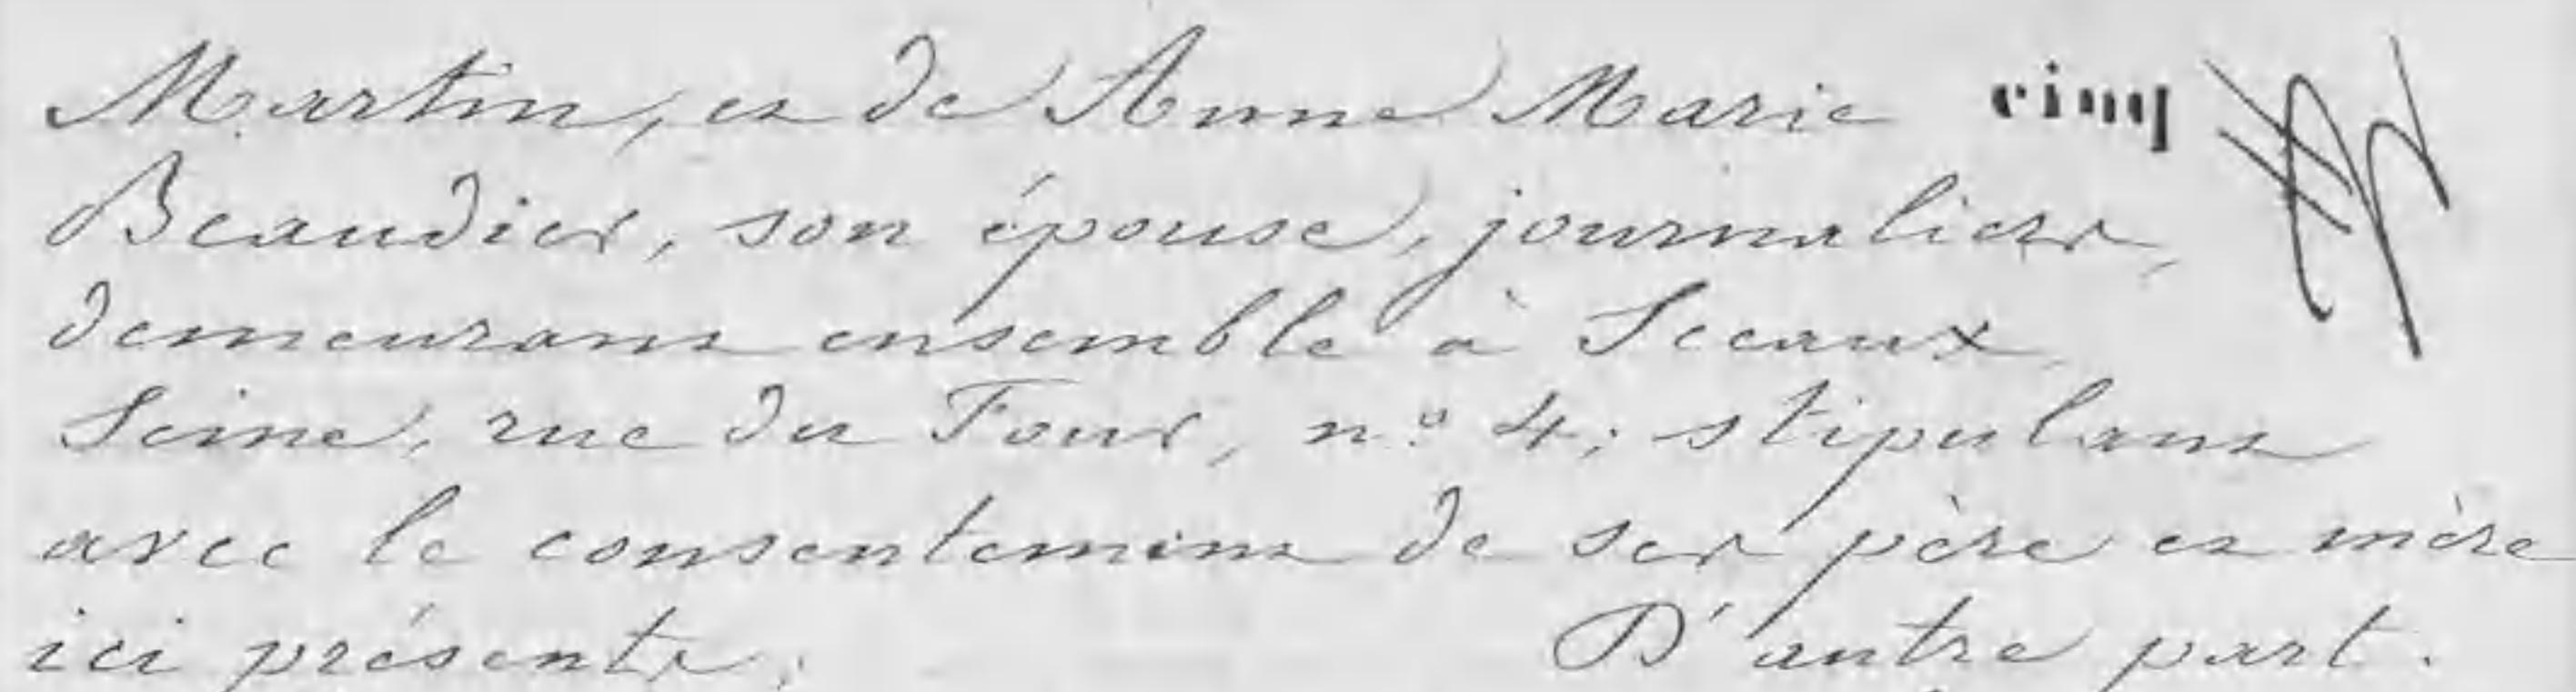 Martin, et de Anne Marie cinq
Beaudier, son épouse, journaliers,
demeurant ensemble à Sceaux
Seine, rue du Four, n.º 4; stipulant
avec le consentement de ses père et mère
ici présents; D'autre part.